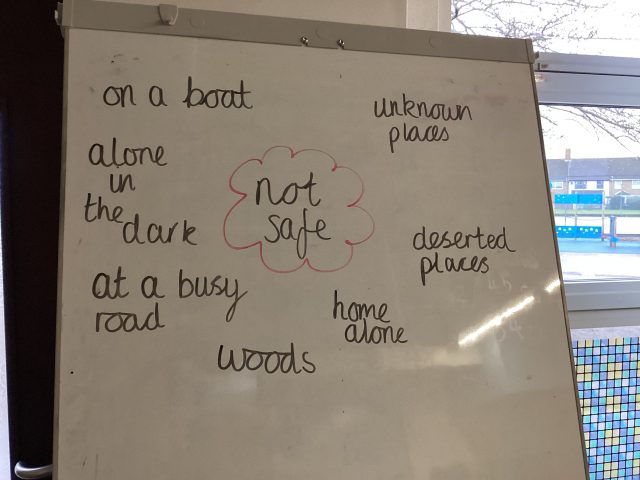 on a boat
unknown
places
alone
in
the
dark
not
safe
deserted
places
at a busy
road
home
alone
woods